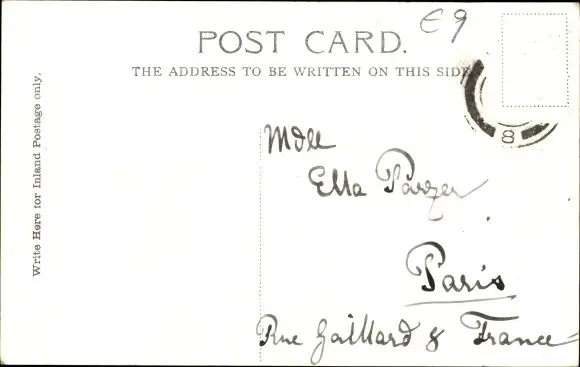 E9
POST CARD.
THE ADDRESS TO BE WRITTEN ON THIS SIDE
8
Write Here for Inland Postage only,
Mdlle
Ella Parzer
Paris
Rue Gaillard 8 France